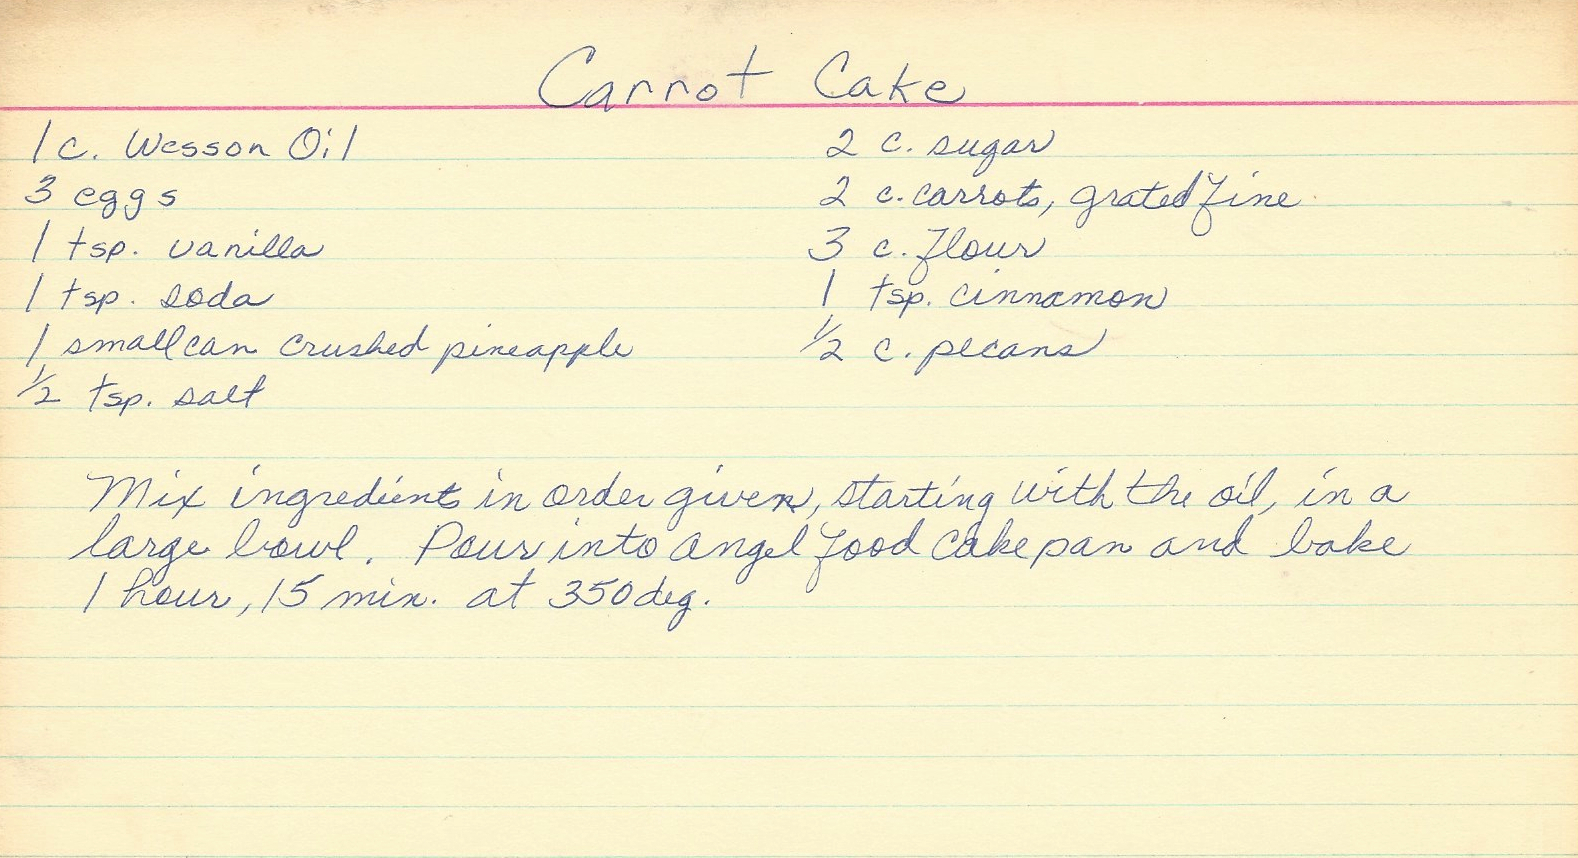 Carrot Cake
1 c. Wesson Oil 2 c. sugar
3 eggs 2 c. carrots, grated fine
1 tsp. vanilla 3 c. flour
1 tsp. soda 1 tsp. cinnamon
1 small can crushed pineapple 1/2 c. pecans
1/2 tsp. salt
Mix ingredients in order given, starting with the oil, in a
large bowl. Pour into angel food cake pan and bake
1 hour, 15 min. at 350 deg.